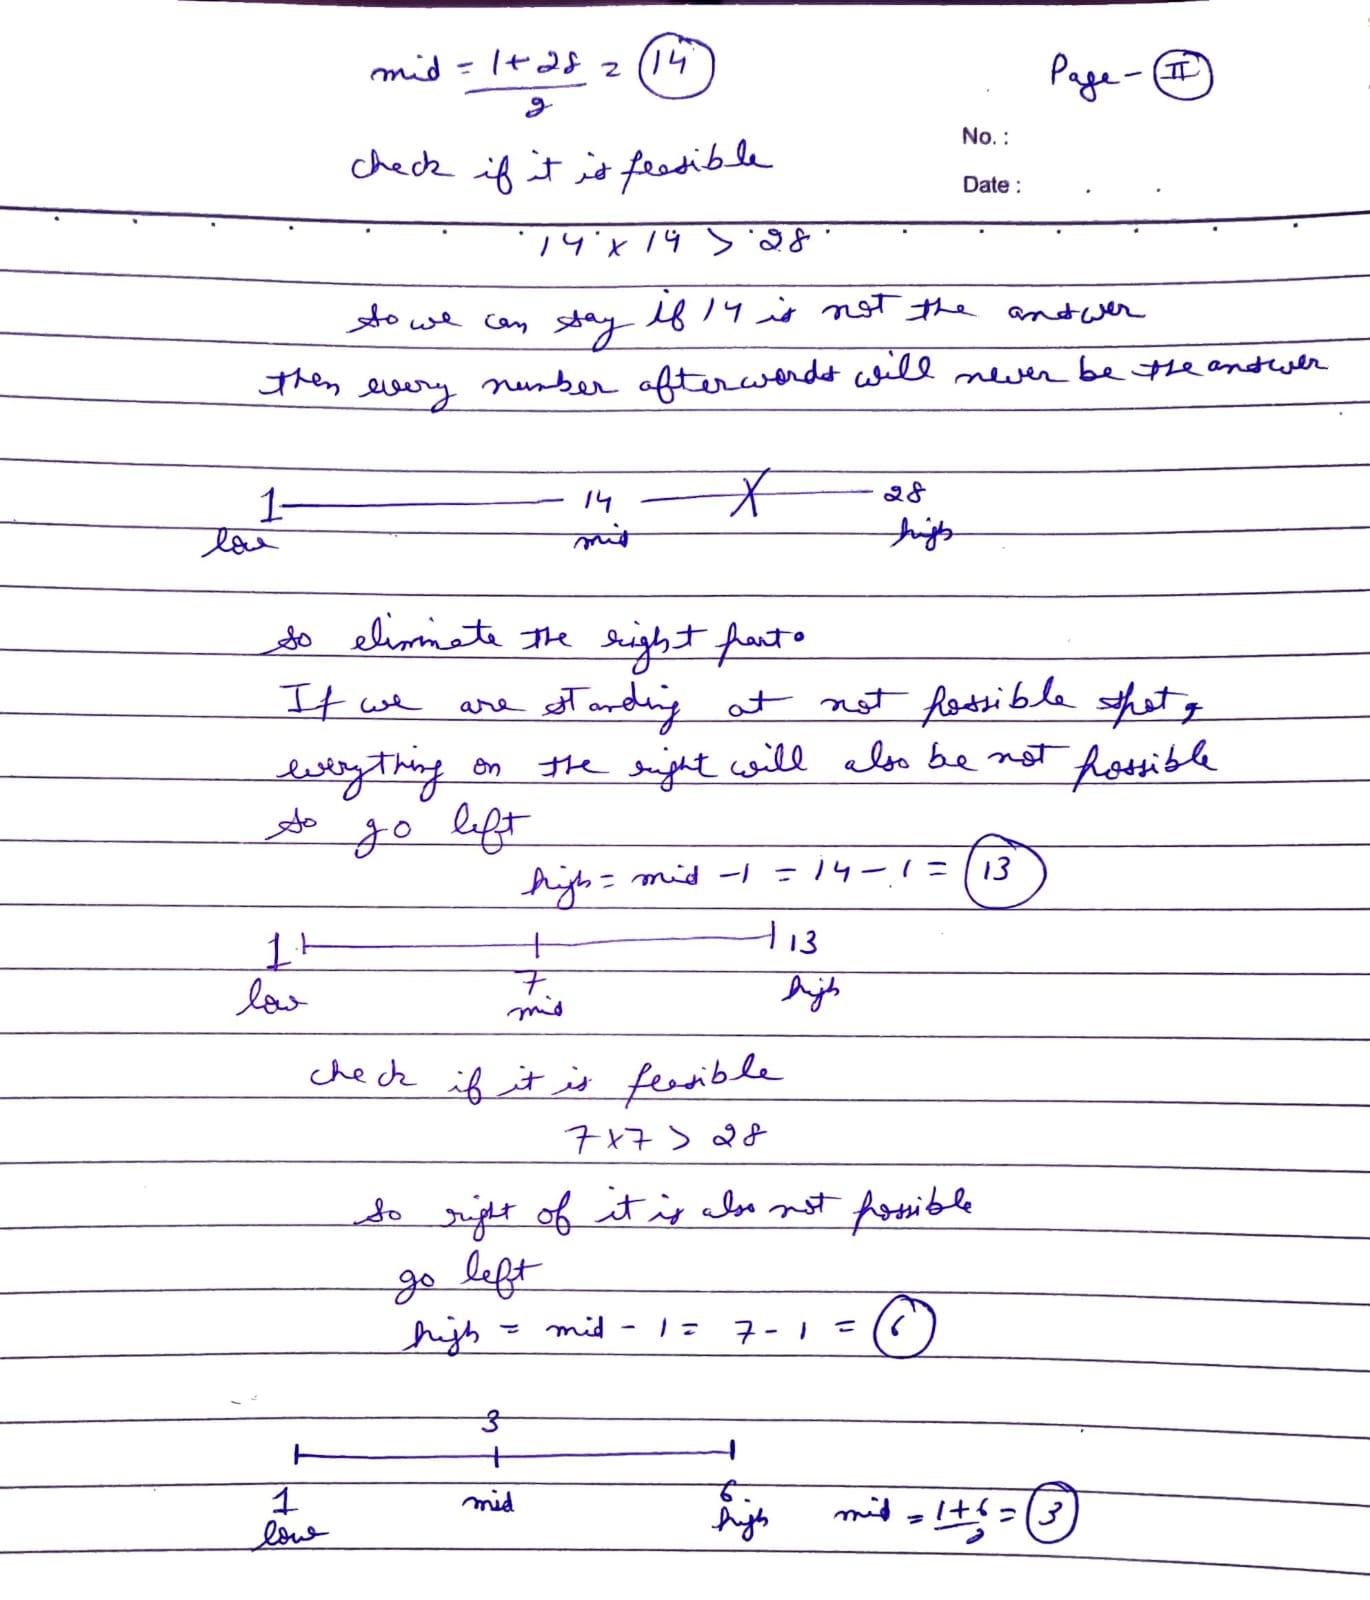 mid = 1+28 / 2 = 14
Page - II
No. :
check if it is feasible
Date :
14 x 14 > 28
so we can say if 14 is not the answer
then every number afterwords will never be the answer
1 14 X 28
low mid high
so eliminate the right part.
If we are standing at not possible spot,
everything on the right will also be not possible
so go left
high = mid - 1 = 14 - 1 = 13
1 13
7
low mid high
check if it is feasible
7 x 7 > 28
so right of it is also not possible
go left
high = mid - 1 = 7 - 1 = 6
3
1 mid 6
low high mid = 1+6 / 2 = 3